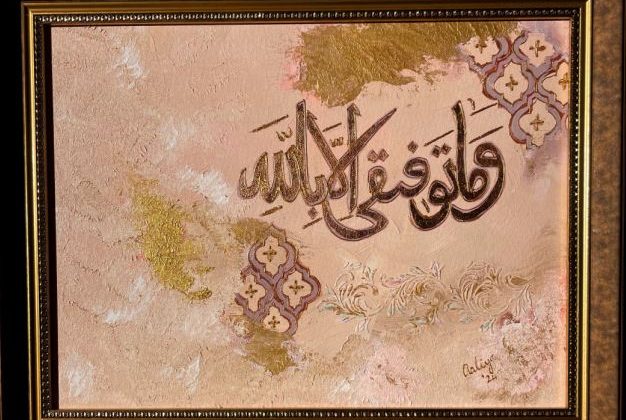 وَمَا تَوْفِيقِى إِلَّا بِاللَّهِ
Aaliya
'21